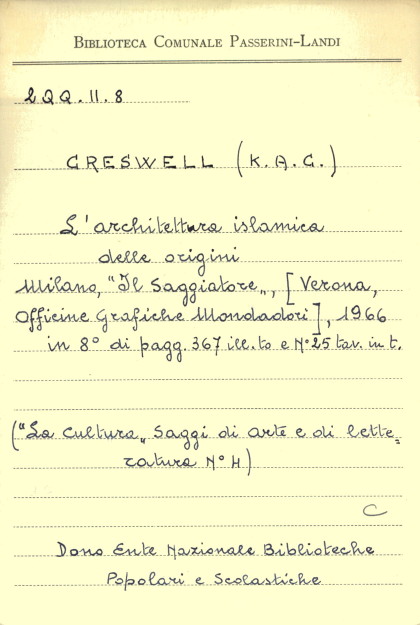 BIBLIOTECA COMUNALE PASSERINI-LANDI
2QQ.11.8
CRESWELL (K.A.C.)
L'architettura islamica
delle origini
Milano, "Il Saggiatore„, [Verona,
Officine Grafiche Mondadori], 1966
in 8° di pagg. 367 ill.to e N° 25 tav. in t.
("La Cultura„ Saggi di arte e di lette=
ratura N° 4)
C
Dono Ente Nazionale Biblioteche
Popolari e Scolastiche